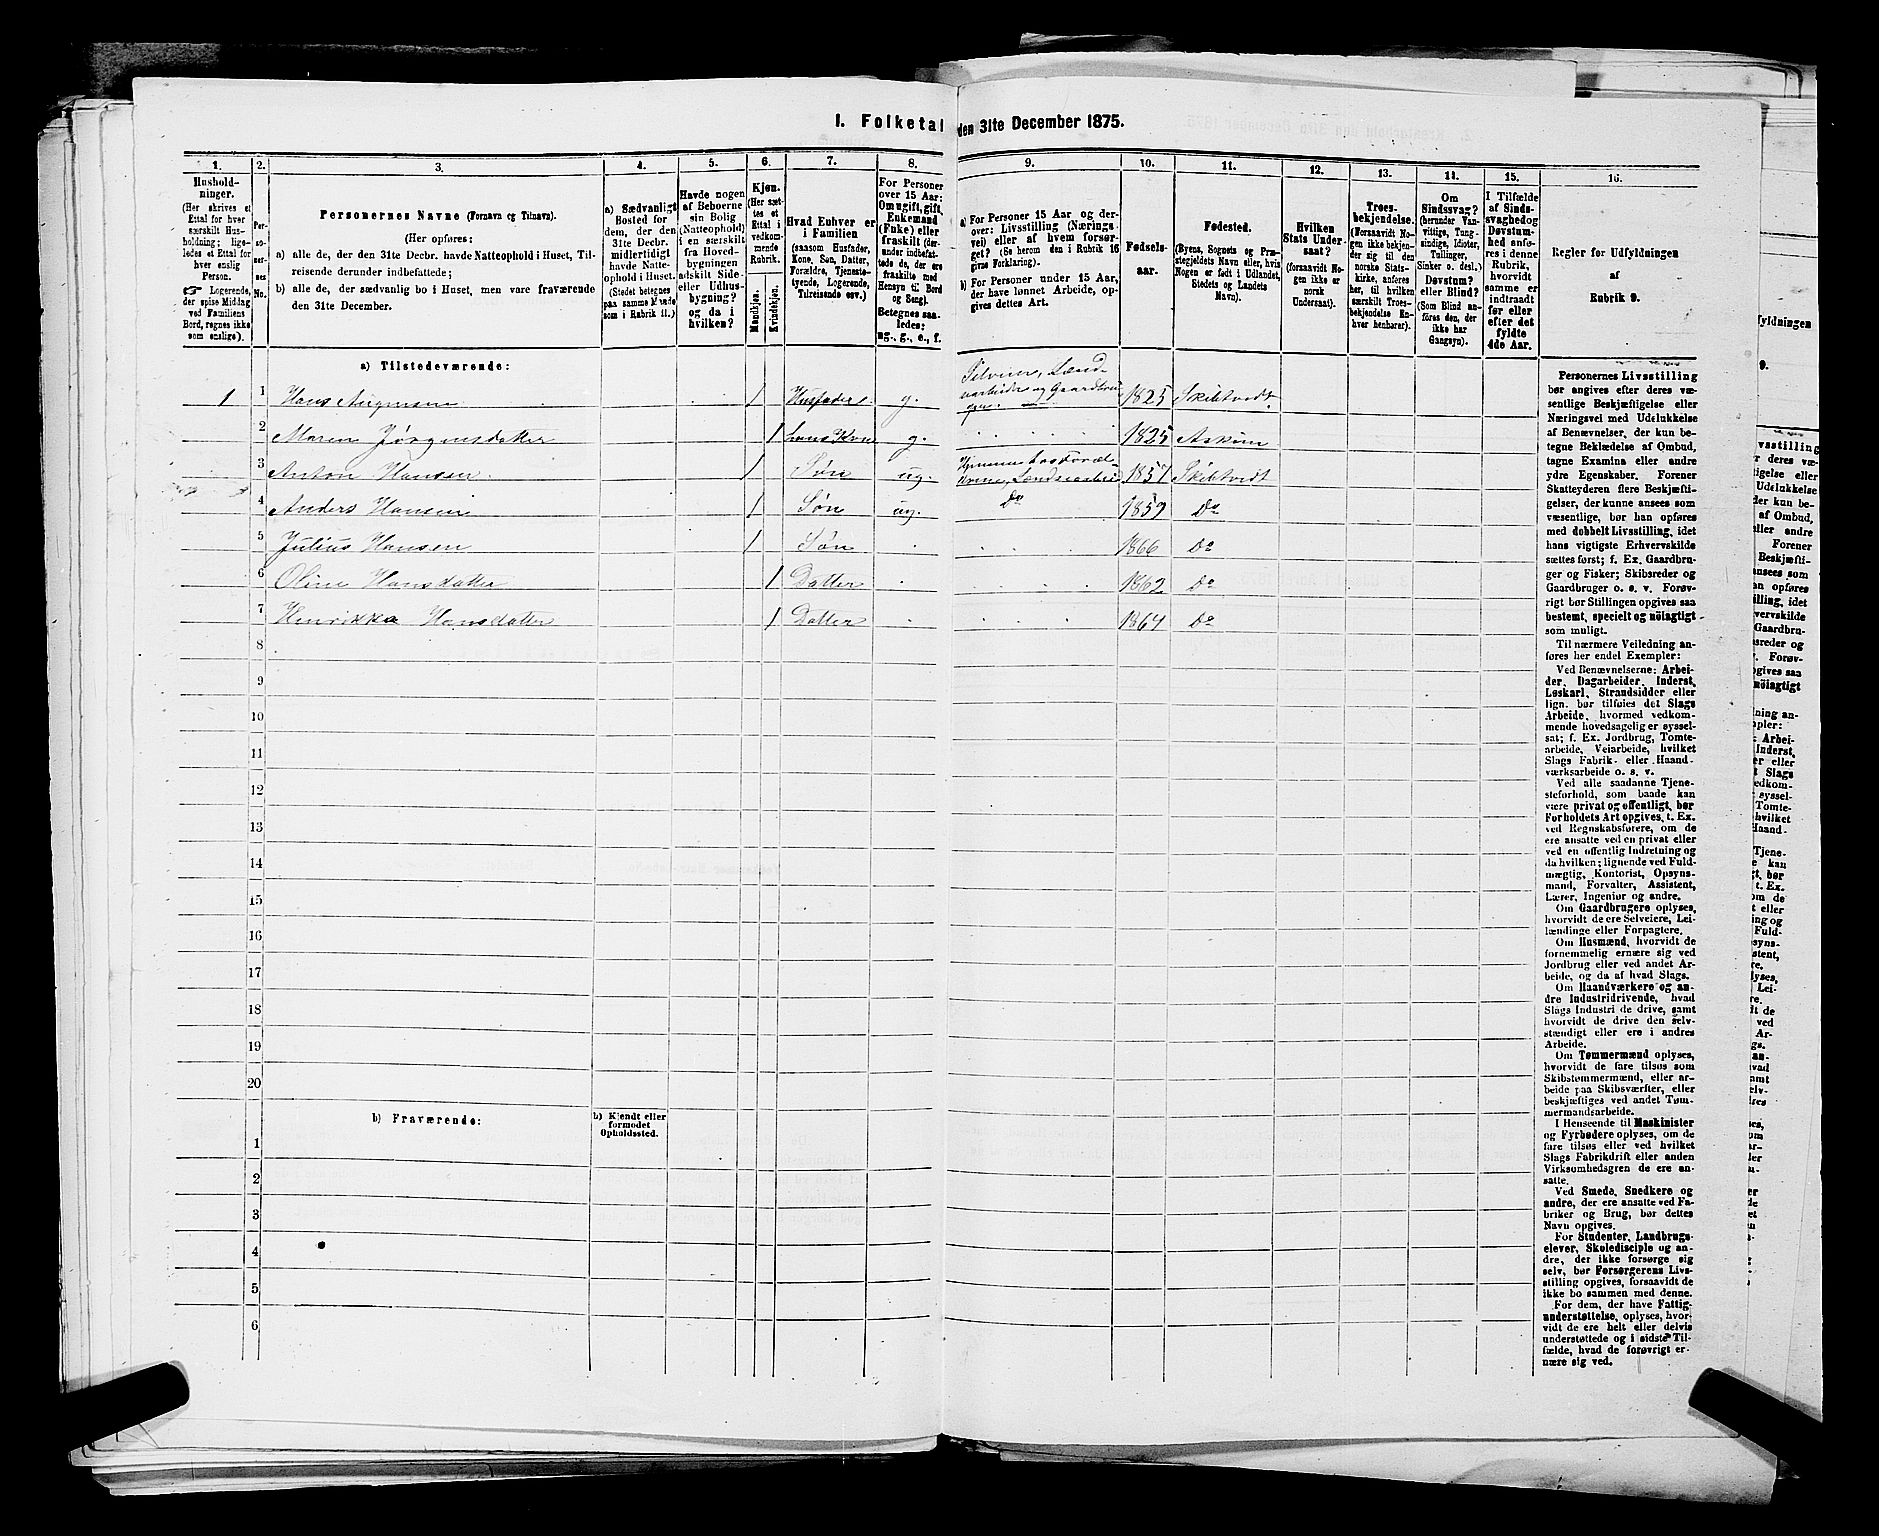 I. Folketal den 31te December 1875.
1. 2. 3. 4. 5. 6. 7. 8. 9. 10. 11. 12. 13. 14. 15. 16.
Hushold-
ninger.
(Her skrives et
Ettal for hver
særskilt Hus-
holdning; lige-
ledes et Ettal for
hver enslig
Person.
☞ Logerende,
der spise Middag
ved Familiens
Bord, regnes ikke
som enslige).
Per-
so-
ner-
nes
No.
Personernes Navne (Fornavn og Tilnavn).
(Her opføres:
a) alle de, der den 31te Decbr. havde Natteophold i Huset, Til-
reisende derunder indbefattede;
b) alle de, der sædvanlig bo i Huset, men vare fraværende
den 31te December.
a) Sædvanligt
Bosted for
dem, der den
31te Decbr.
midlertidigt
havde Natte-
ophold i Huset.
(Stedet betegnes
paa samme Maade
som i Rubrik 11.)
Havde nogen
af Beboerne
sin Bolig
(Natteophold)
i en særskilt
fra Hoved-
bygningen
adskilt Side-
eller Udhus-
bygning?
og da i
hvilken?
Kjøn.
(Her sæt-
tes et
Ettal i
vedkom-
mende
Rubrik.
Mandkjøn.
Kvindekjøn.
Hvad Enhver er
i Familien
(saasom Husfader,
Kone, Søn, Datter,
Forældre, Tjeneste-
tyende, Logerende,
Tilreisende osv.)
For Personer
over 15 Aar:
Om ugift, gift,
Enkemand
(Enke) eller
fraskilt (der-
under indbefat-
tede de, der ere
fraskilte med
Hensyn til Bord
og Seng).
Betegnes saa-
ledes:
ug., g., e., f.
a) For Personer 15 Aar og der-
over: Livsstilling (Nærings-
vei) eller af hvem forsør-
get? (Se herom den i Rubrik 16
givne Forklaring).
b) For Personer under 15 Aar,
der have lønnet Arbeide, op-
gives dettes Art.
Fødsels-
aar.
Fødested.
(Byens, Sognets og Præ-
stegjeldets Navn eller, hvis
Nogen er født i Udlandet,
Stedets og Landets
Navn).
Hvilken
Stats Under-
saat?
(forsaavidt No-
gen ikke er
norsk
Undersaat).
Troes-
bekjendelse.
(Forsaavidt No-
gen ikke bekjen-
der sig til den
norske Stats-
kirke, anføres
her, til hvilken
særskilt Troes-
bekjendelse En-
hver henhører).
Om
Sindssvag?
(herunder Van-
vittige, Tung-
sindige, Idioter,
Tullinger,
Sinker o. desl.)
Døvstum?
eller Blind?
(Som Blind an-
føres den, der
ikke har
Gangsyn).
I Tilfælde
af Sinds-
svaghed og
Døvstum-
hed anfø-
res i denne
Rubrik,
hvorvidt
samme er
indtraadt
før eller
efter det
fyldte
4de Aar.
Regler for Udfyldningen
af
Rubrik 9.
a) Tilstedeværende:
1 1 Hans 1 Husfader g. 1825 Skibtvedt
2 Maren Jørgensdatter 1 g. 1825 Askim
3 Anton Hansen 1 Søn ug. 1857 Skibtvedt
4 Anders Hansen 1 Søn ug. Do 1859 Do
5 Julius Hansen 1 Søn 1866 Do
6 Oline Hansdatter 1 Datter 1862 Do
7 Henrikka Hansdatter 1 Datter 1864 Do
8
9
10
11
12
13
14
15
16
17
18
19
20
b) Fraværende:
b) Kjendt eller
formodet
Opholdssted.
1
2
3
4
5
6
Personernes Livsstilling
bør angives efter deres væ-
sentlige Beskjæftigelse eller
Næringsvei med Udelukkelse
af Benævnelser, der kun be-
tegne Beklædelse af Ombud,
tagne Examina eller andre
ydre Egenskaber. Forener
Skatteyderen flere Beskjæfti-
gelser, der kunne ansees som
væsentlige, bør han opføres
med dobbelt Livsstilling, idet
hans vigtigste Erhvervskilde
sættes først; f. Ex. Gaardbru-
ger og Fisker; Skibsreder og
Gaardbruger o. s. v. Forøv-
rigt bør Stillingen opgives saa
bestemt, specielt og nöiagtigt
som muligt.
Til nærmere Veiledning an-
føres her endel Exempler:
Ved Benævnelserne: Arbei-
der, Dagarbeider, Inderst,
Løskarl, Strandsidder eller
lign. bør tilføies det Slags
Arbeide, hvormed vedkom-
mende hovedsagelig er syssel-
sat; f. Ex. Jordbrug, Tomte-
arbeide, Veiarbeide, hvilket
Slags Fabrik- eller Haand-
værksarbeide o. s. v.
Ved alle saadanne Tjene-
steforhold, som baade kan
være privat og offentligt, bør
Forholdets Art opgives, t. Ex.
ved Regnskabsførere, om de
ere ansatte ved en privat eller
ved en offentlig Indretning og
da hvilken; lignende ved Fuld-
mægtig, Kontorist, Opsyns-
mand, Forvalter, Assistent,
Lærer, Ingeniør og andre.
Om Gaardbrugere oplyses,
hvorvidt de ere Selveiere, Lei-
lændinge eller Forpagtere.
Om Husmænd, hvorvidt de
fornemmelig ernære sig ved
Jordbrug eller ved andet Ar-
beide, og da af hvad Slags.
Om Haandværkere og an-
dre Industridrivende, hvad
Slags Industri de drive, samt
hvorvidt de drive den selv-
stændigt eller ere i andres
Arbeide.
Om Tømmermænd oplyses,
hvorvidt de fare tilsøs som
Skibstømmermænd, eller ar-
beide paa Skibsværfter, eller
beskjæftiges ved andet Tøm-
mermandsarbeide.
I Henseende til Maskinister
og Fyrbødere oplyses, om de
fare tilsøs eller ved hvilket
Slags Fabrikdrift eller anden
Virksomhedsgren de ere an-
satte.
Ved Smede, Snedkere og
andre, der ere ansatte ved Fa-
briker og Brug, bør dettes
Navn opgives.
For Studenter, Landbrugs-
elever, Skoledisciple og an-
dre, der ikke forsørge sig
selv, bør Forsørgerens Livs-
stilling opgives, forsaavidt de
ikke bo sammen med denne.
For dem, der have Fattig-
understøttelse, oplyses, hvor-
vidt de ere helt eller delvis
understøttede og i sidste Til-
fælde, hvad de forøvrigt er-
nære sig ved.